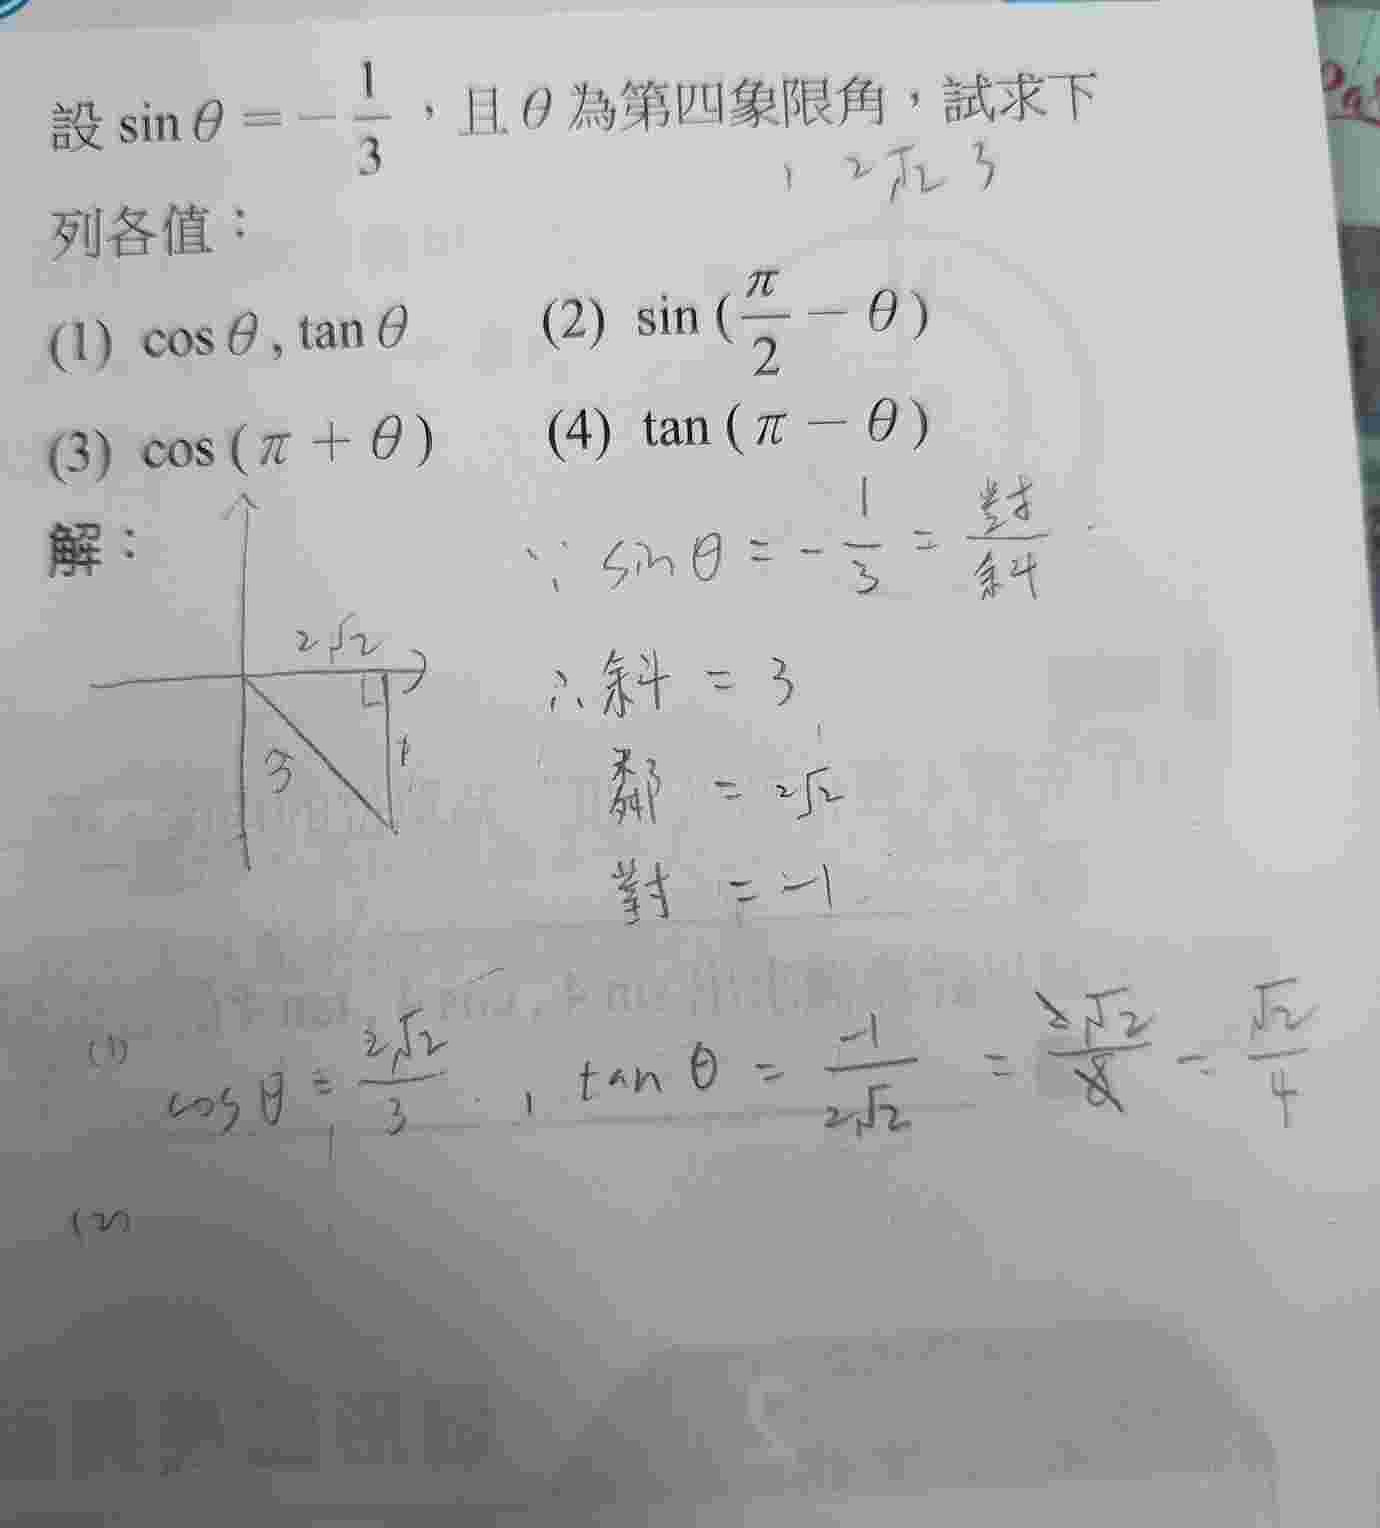 設 sin θ = - 1/3 ，且 θ 為第四象限角，試求下
1 2√2 3
列各值：
(1) cos θ , tan θ (2) sin (π/2 - θ)
(3) cos (π + θ) (4) tan (π - θ)
解：
∵ sin θ = - 1/3 = 對/斜
2√2
3
1
∴ 斜 = 3
鄰 = 2√2
對 = -1
(1) cos θ = 2√2/3 , tan θ = -1/2√2 = 2√2/8 = √2/4
(2)